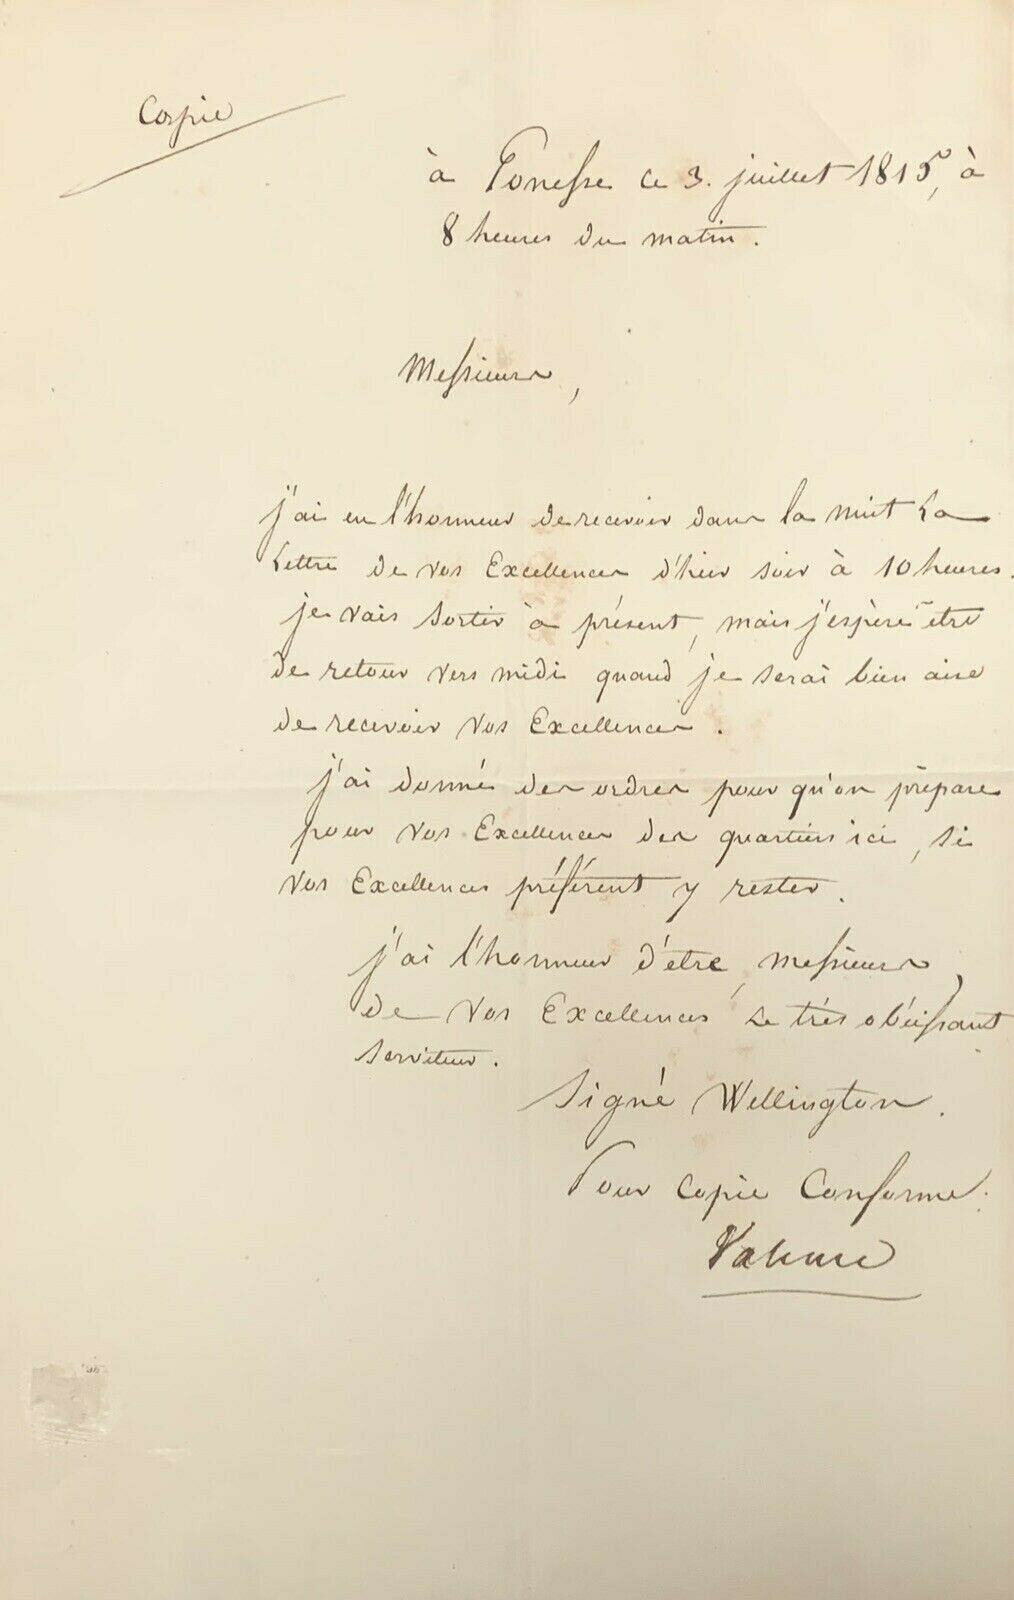 Copie
à Gonesse ce 3. juillet 1815, à
8 heures du matin.
Messieurs,
j'ai eu l'honneur de recevoir dans la nuit La
Lettre de vos Excellences d'hier soir à 10 heures.
je vais sortir à présent, mais j'espère être
de retour vers midi quand je serai bien aise
de recevoir vos Excellences.
j'ai donné des ordres pour qu'on prépare
pour vos Excellences des quartiers ici, si
vos Excellences préférent y rester.
j'ai l'honneur d'être, messieurs,
de vos Excellences Le très obéissant
serviteur.
Signé Wellington.
Pour copie Conforme.